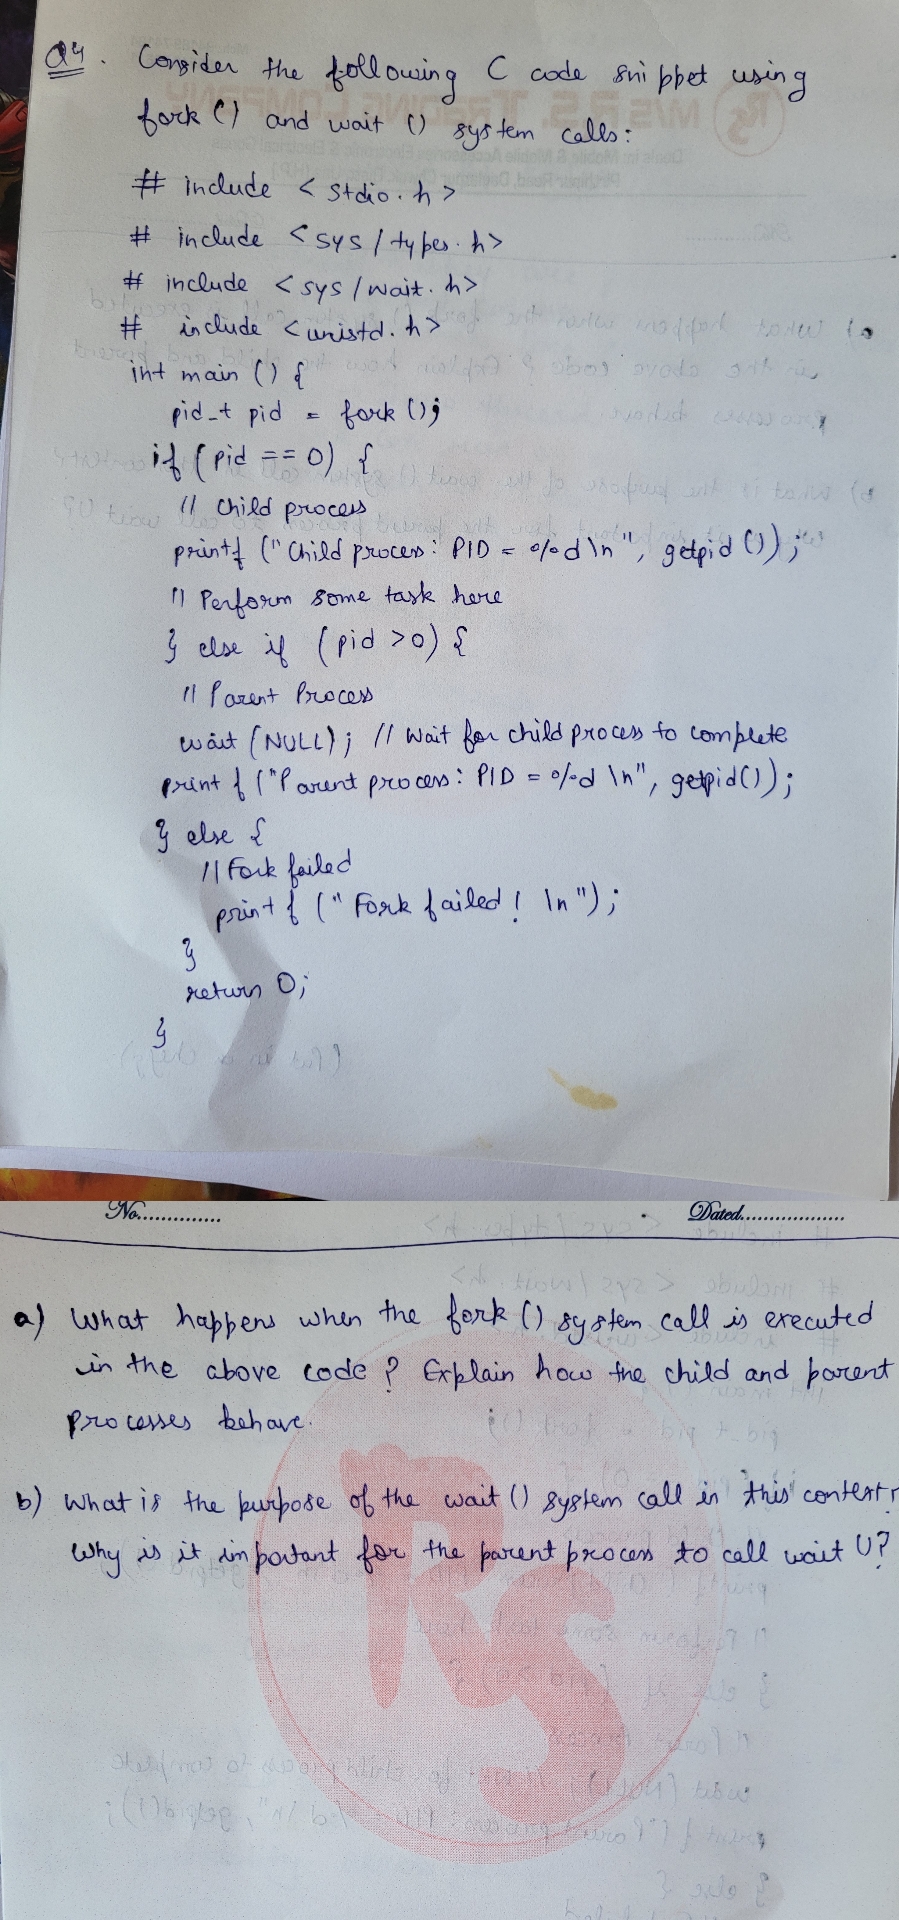 Q4. Consider the following C code snippet using
fork () and wait () system calls:
# include < stdio.h >
# include < sys / types.h >
# include < sys / wait. h >
# include < unistd. h >
int main () {
pid_t pid = fork ();
if ( pid == 0) {
// Child process
printf (" Child process : PID = %d \n ", getpid ()) ;
// Perform some task here
} else if ( pid > 0) {
// Parent Process
wait (NULL) ; // Wait for child process to complete
print f (" Parent process : PID = %d \n", getpid()) ;
} else {
// Fork failed
print f (" Fork failed ! \n ") ;
}
return 0;
}
No..............
Dated..................
a) What happens when the fork () system call is executed
in the above code ? Explain how the child and parent
processes behave.
b) What is the purpose of the wait () system call in this context
Why is it important for the parent process to call wait ()?
RS